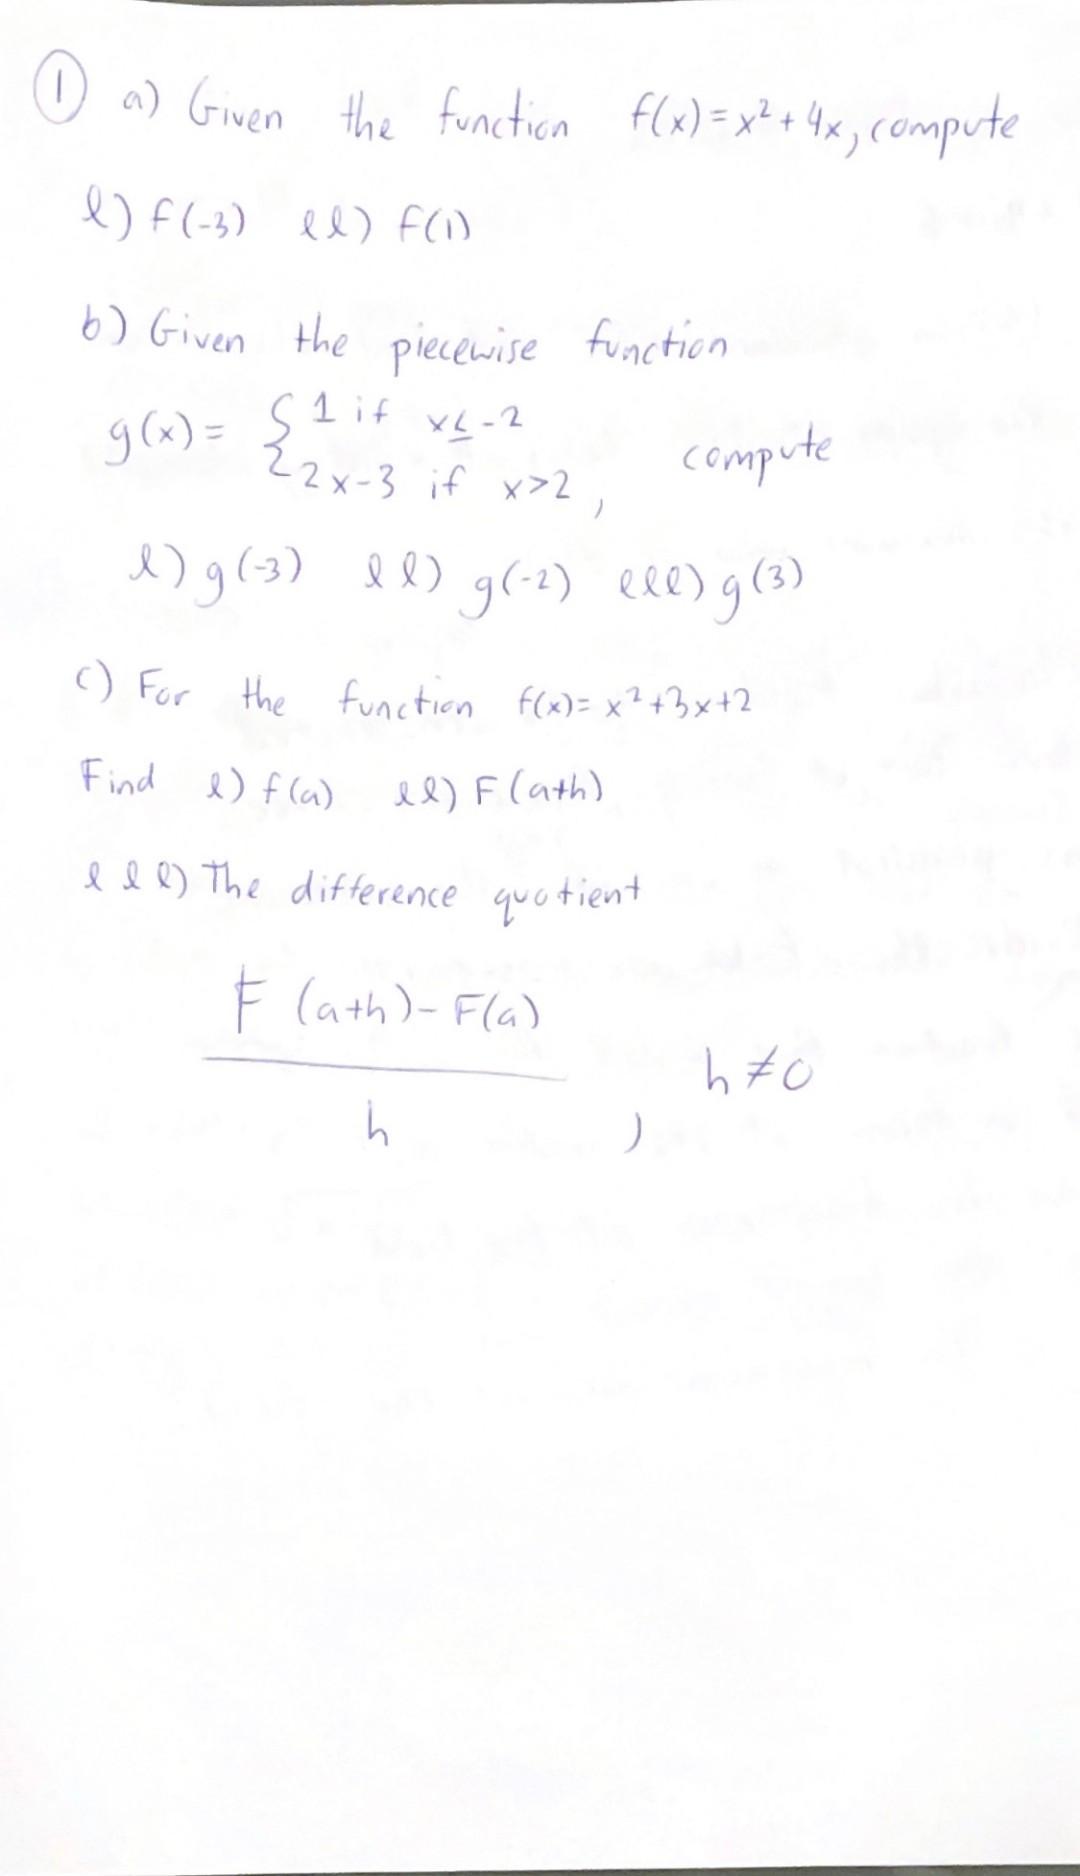 ① a) Given the function f(x) = x² + 4x, compute
l) f(-3) ll) f(1)
b) Given the piecewise function
g(x) = { 1 if x ≤ -2
2x-3 if x>2 , compute
l) g(-3) ll) g(-2) lll) g(3)
c) For the function f(x) = x² + 3x + 2
Find l) f(a) ll) F(a+h)
lll) The difference quotient
F (a+h) - F(a)
h , h ≠ 0